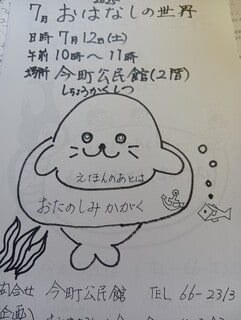 2025
7月 おはなしの世界
日時 7月12日(土)
午前10時〜11時
場所 今町公民館(2階)
しちょうかくしつ
えほんのあとは
おたのしみかがく
問合せ 今町公民館 TEL 66-2313